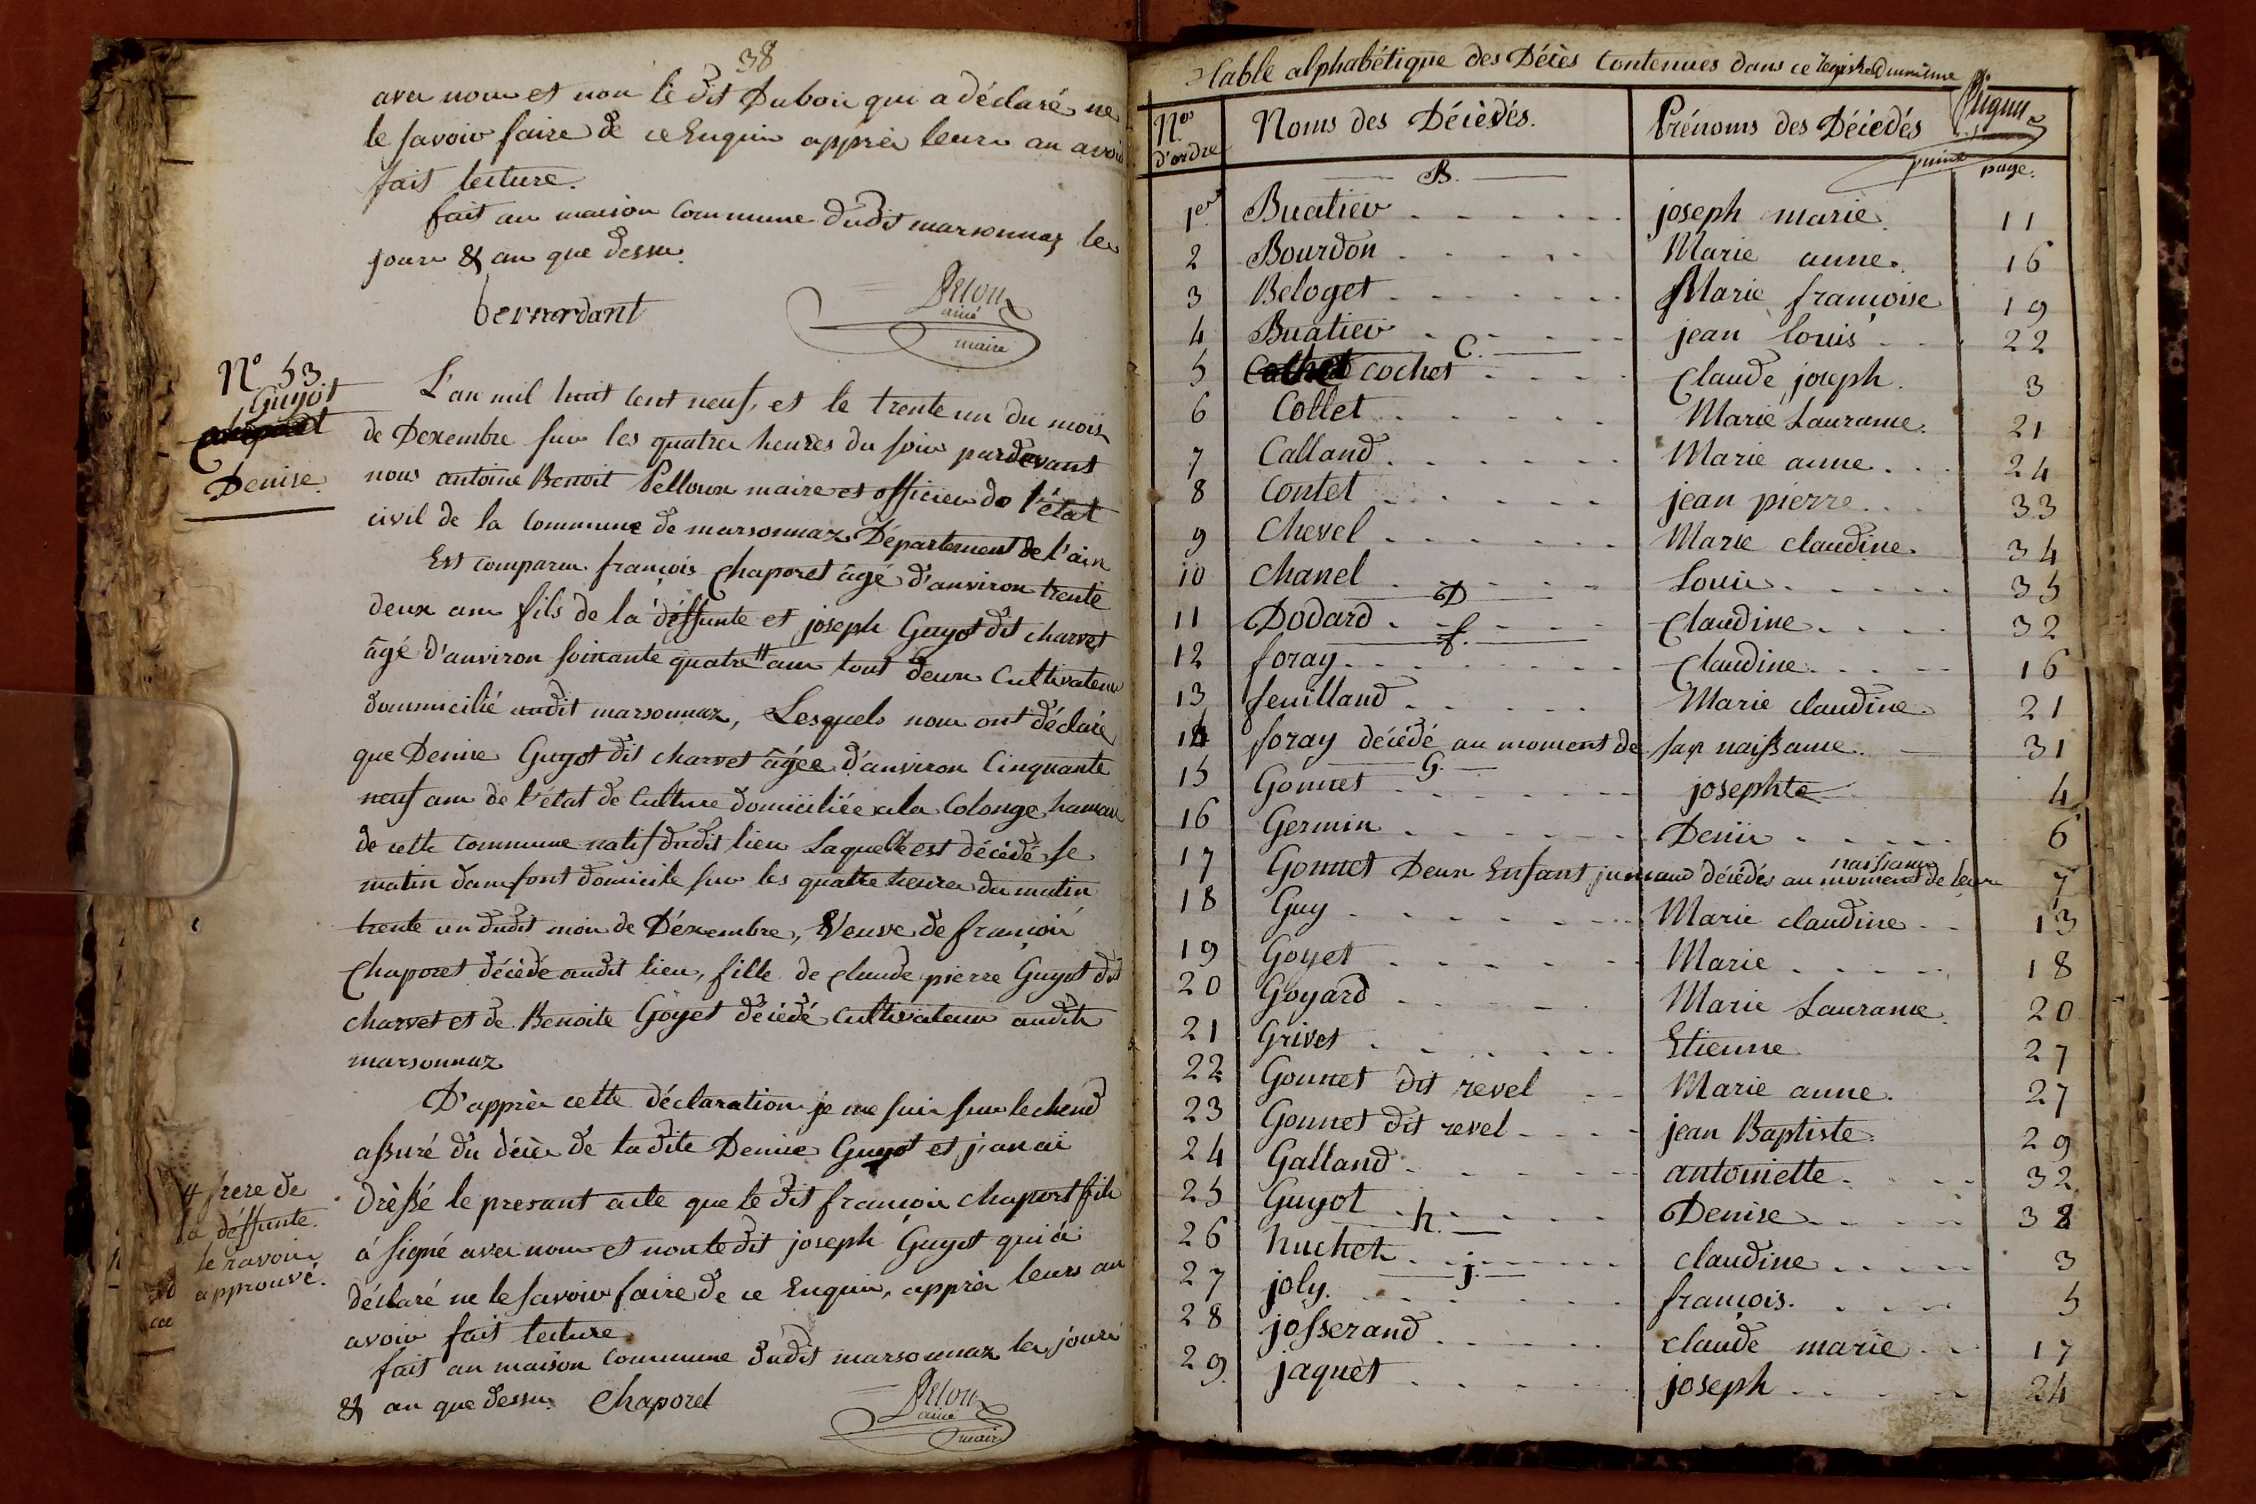 38
avec nous et non le dit Duboir qui a déclaré ne
le savoir faire de ce Enquir apprèr leurs an avoir
fait lecture.
fait an maison commune dudit marsonnaz les
jours & an que dessus.
bernardant
Pelou
ainé
maire
N° 53
Guyot
Denise.
L'an mil huit cent neuf, et le trente un du mois
de Dexembre sur les quatre heures du soir pardevant
nous antoine Benoit Pelloux maire et officier de l'état
civil de la Commune de marsonnaz Département de l'ain
Est comparu françois Chaporet âgé d'anviron trente
deux ans fils de la déffunte et joseph Guyot dit charvet
âgé d'anviron soixante quatre # ans tout deux Cultivateurs
dommicilié audit marsonnaz, Lesquels nous ont déclaré
que Denise Guyot dit charvet âgée d'anviron Cinquante
neuf ans de l'état de Culture domiciliée a la Colonge hamau
de cette Commune natif dudit lieu Laquelle est décédé se
matin dans sont domicile sur les quatre heures du matin
trente un dudit mois de Déxembre, Veuve de françoir
Chaporet décédé audit lieu, fille de claude pierre Guyot dit
charvet et de Benoite Goyet décédé Cultivateurs audit
marsonnaz
D'apprèr cette déclaration je me suis sur le chend
assuré du décès de la dite Denise Guyot et j'an ai
drèssé le presant acte que le dit françoir chaport fils
à signé avec nous et non le dit joseph Guyot qui à
déclaré ne le savoir faire de ce Enquir, apprèr leurs an
avoir fait lecture
fait an maison commune dudit marsonnaz les jours
& an que dessus. Chaporet
# frere de
la déffunte.
le ravoir
approuvé.
Pelou
ainé
maire
Table alphabétique des Décès Contenues dans ce registre
N.os d'ordre
Noms des Décèdés.
Prénoms des Décedés
page.
B.
1er Buatier joseph marie. 11
2 Bourdon Marie anne. 16
3 Beloget Marie françoise 19
4 Buatier jean louis 22
C.
5 cochet Claude joseph. 3
6 Collet Marie Laurance. 21
7 Calland Marie anne. 24
8 Contet jean pierre 33
9 Chevel Marie claudine. 34
10 Chanel Louis 35
D
11 Dodard Claudine 32
f.
12 foray Claudine 16
13 feuilland Marie claudine. 21
14 foray décédé au moment de sa naissance. 31
G.
15 Gonnet josephte 4
16 Germin Denis 6
17 Gonnet Deux Enfant jumaud décédés au moment de leur naissance 7
18 Guy Marie claudine 13
19 Goyet Marie 18
20 Goyard Marie Laurance. 20
21 Grivet Etienne 27
22 Gonnet dit revel Marie anne. 27
23 Gonnet dit revel jean Baptiste. 29
24 Galland antoinette 32
25 Guyot Denise 38
h.
26 huchet claudine 3
j.
27 joly. françois. 5
28 josserand claude marie 17
29. jaquet joseph 24